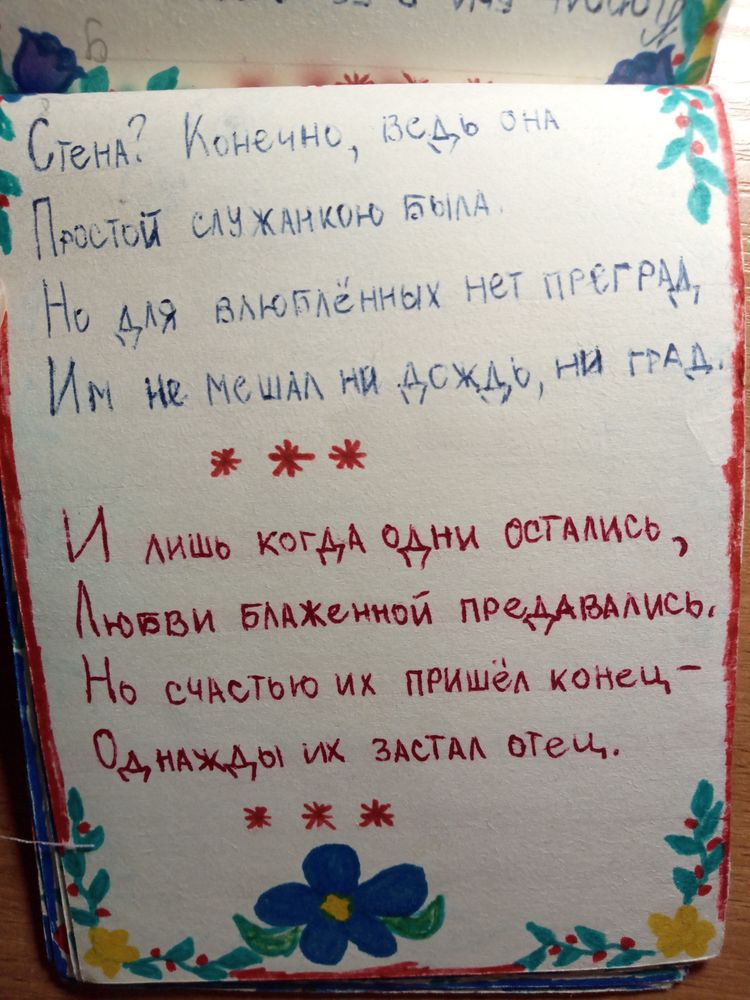 Стена? Конечно, ведь она
Простой служанкою была.
Но для влюблённых нет преград,
Им не мешал ни дождь, ни град.
* * *
И лишь когда одни остались,
Любви блаженной предавались.
Но счастью их пришёл конец –
Однажды их застал отец.
* * *